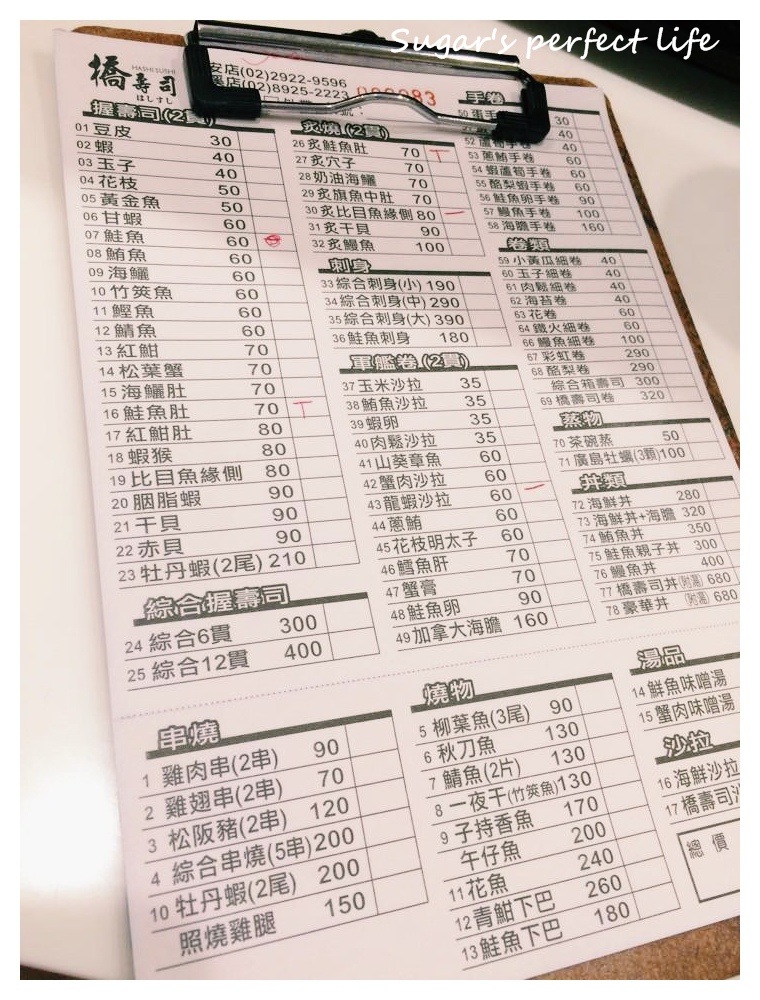 Sugar's perfect life
橋壽司
HASHI SUSHI
はしすし
安店(02)2922-9596
店(02)8925-2223
握壽司(2貫)
01 豆皮 30
02 蝦 40
03 玉子 40
04 花枝 50
05 黃金魚 50
06 甘蝦 60
07 鮭魚 60
08 鮪魚 60
09 海鱺 60
10 竹筴魚 60
11 鰹魚 60
12 鯖魚 60
13 紅魽 70
14 松葉蟹 70
15 海鱺肚 70
16 鮭魚肚 70 一
17 紅魽肚 80
18 蝦猴 80
19 比目魚緣側 80
20 胭脂蝦 90
21 干貝 90
22 赤貝 90
23 牡丹蝦(2尾) 210
綜合握壽司
24 綜合6貫 300
25 綜合12貫 400
炙燒(2貫)
26 炙鮭魚肚 70
27 炙穴子 70
28 奶油海鱺 70
29 炙旗魚中肚 70
30 炙比目魚緣側 80 一
31 炙干貝 90
32 炙鰻魚 100
刺身
33 綜合刺身(小) 190
34 綜合刺身(中) 290
35 綜合刺身(大) 390
36 鮭魚刺身 180
軍艦卷(2貫)
37 玉米沙拉 35
38 鮪魚沙拉 35
39 蝦卵 35
40 肉鬆沙拉 35
41 山葵章魚 60
42 蟹肉沙拉 60
43 龍蝦沙拉 60 一
44 蔥鮪 60
45 花枝明太子 60
46 鱈魚肝 70
47 蟹膏 70
48 鮭魚卵 90
49 加拿大海膽 160
手卷
50 蛋手 30
40
52 蘆筍手卷 40
53 蔥鮪手卷 60
54 蝦蘆筍手卷 60
55 酪梨蝦手卷 60
56 鮭魚卵手卷 90
57 鰻魚手卷 100
58 海膽手卷 160
卷類
59 小黃瓜細卷 40
60 玉子細卷 40
61 肉鬆細卷 40
62 海苔卷 40
63 花卷 60
64 鐵火細卷 60
66 鰻魚細卷 100
67 彩虹卷 290
68 酪梨卷 290
綜合箱壽司 300
69 橋壽司卷 320
蒸物
70 茶碗蒸 50
71 廣島牡蠣(3顆) 100
丼類
72 海鮮丼 280
73 海鮮丼+海膽 320
74 鮪魚丼 350
75 鮭魚親子丼 300
76 鰻魚丼 400
77 橋壽司丼(附湯) 680
78 豪華丼 (附湯) 680
串燒
1 雞肉串(2串) 90
2 雞翅串(2串) 70
3 松阪豬(2串) 120
4 綜合串燒(5串) 200
10 牡丹蝦(2尾) 200
照燒雞腿 150
燒物
5 柳葉魚(3尾) 90
6 秋刀魚 130
7 鯖魚(2片) 130
8 一夜干(竹筴魚) 130
9 子持香魚 170
午仔魚 200
11 花魚 240
12 青魽下巴 260
13 鮭魚下巴 180
湯品
14 鮮魚味噌湯
15 蟹肉味噌湯
沙拉
16 海鮮沙拉
17 橋壽司沙
總價